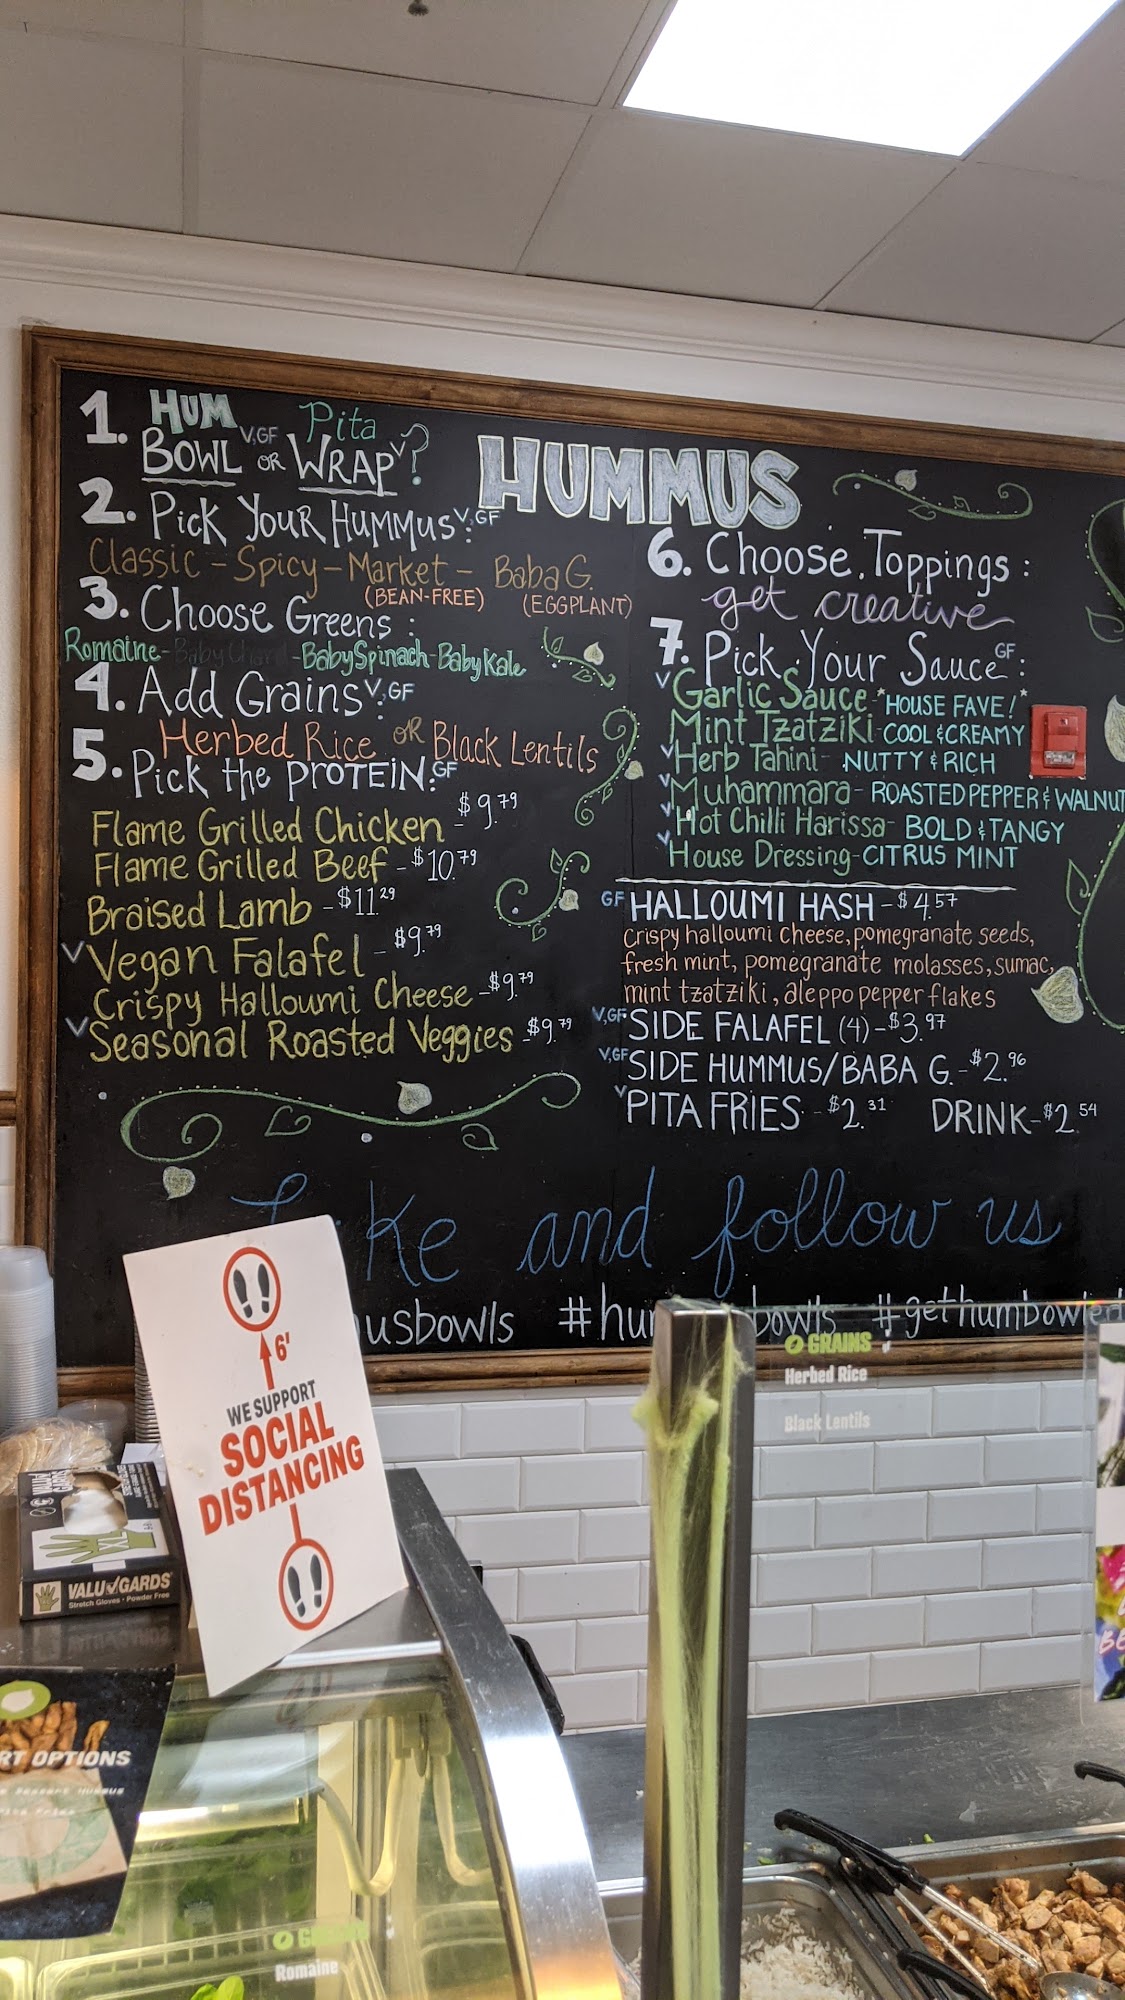 1. HUM Pita
BOWL V,GF OR WRAP V ?
HUMMUS
2. Pick Your Hummus V,GF :
Classic - Spicy - Market - Baba G.
(BEAN-FREE) (EGGPLANT)
3. Choose Greens :
Romaine - Baby Chard - Baby Spinach - Baby Kale
4. Add Grains V,GF :
Herbed Rice OR Black Lentils
5. Pick the PROTEIN: GF
Flame Grilled Chicken - $9.79
Flame Grilled Beef - $10.79
Braised Lamb - $11.29
V Vegan Falafel - $9.79
Crispy Halloumi Cheese - $9.79
V Seasonal Roasted Veggies - $9.79
6. Choose Toppings :
get creative
7. Pick Your Sauce GF :
V Garlic Sauce - *HOUSE FAVE!*
Mint Tzatziki - COOL & CREAMY
V Herb Tahini - NUTTY & RICH
V Muhammara - ROASTED PEPPER & WALNUT
V Hot Chilli Harissa - BOLD & TANGY
V House Dressing - CITRUS MINT
GF HALLOUMI HASH - $4.57
Crispy halloumi cheese, pomegranate seeds,
fresh mint, pomegranate molasses, sumac,
mint tzatziki, aleppo pepper flakes
V,GF SIDE FALAFEL (4) - $3.97
V,GF SIDE HUMMUS/BABA G. - $2.96
V PITA FRIES - $2.31 DRINK - $2.54
Like and follow us
usbowls #hu bowls #gethumbowled
6'
WE SUPPORT
SOCIAL
DISTANCING
GRAINS
Herbed Rice
Black Lentils
VALU GARDS
Stretch Gloves • Powder Free
RT OPTIONS
Romaine